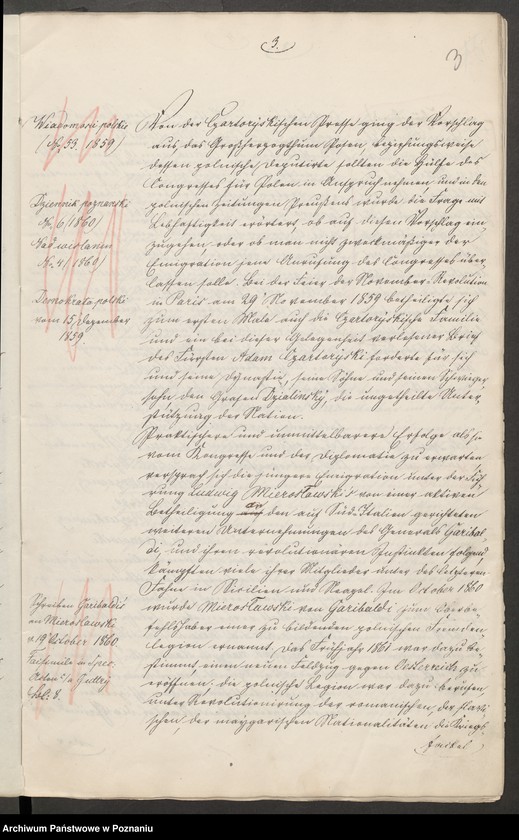 3.
3
Wiadomości polskie
(№ 53. 1859)
Dziennik poznański
№ 6/1860/
Nadwiślanin
№ 4/1860/
Demokrata polski
vom 15 Dezember
1859
Von der Czartoryskischen Presse ging der Vorschlag
aus, das Großherzogthum Posen, beziehungsweise
dessen polnische Deputirte sollten die Hülfe des
Congresses für Polen in Anspruch nehmen und in den
polnischen Zeitungen Preußens wurde die Frage mit
Lebhaftigkeit erörtert, ob auf diesen Vorschlag ein,
zugehen, oder ob man nicht zweckmäßiger der
Emigration jene Anrufung des Congresses über,
lassen solle. Bei der Feier der November-Revolution
in Paris am 29 November 1859 betheiligte sich
zum ersten Male auch die Czartoryskische Familie
und ein bei dieser Gelegenheit verlesener Brief
des Fürsten Adam Czartoryski forderte für sich
und seine Dynastie, seine Söhne und seinen Schwieger
sohn den Grafen Dzialinsky, die ungetheilte Unter,
stützung der Nation.
Praktischere und unmittelbarere Erfolge als sie
vom Kongresse und der Diplomatie zu erwarten
versprach sich die jüngere Emigration unter der Füh
rung Ludwig Mierosławski's von einer aktiven
Betheiligung an den auf Süd Italien gerichteten
weiteren Unternehmungen des Generals Garibal
di, und ihren revolutionären Instinkten folgend,
kämpften viele ihrer Mitglieder unter des Letzteren
Fahne in Sicilien und Neapel. Im October 1860
wurde Mierosławski von Garibaldi zum Oberbe
fehlshaber einer zu bildenden polnischen Fremden,
legion ernannt. Das Frühjahr 1861 war dazu be,
stimmt, einen neuen Feldzug gegen Oesterreich zu
eröffnen; die polnische Legion war dazu berufen,
unter Revolutionirung der romanischen, der slavi
schen, der magyarischen Nationalitäten die Kriegs,
fackel
Schreiben Garibaldis
an Mierosławski
v. 19 October 1860.
Facsimile in Spec.
Acten
Archiwum Państwowe w Poznaniu